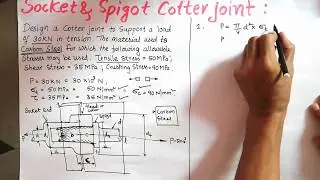 Socket & Spigot Cotter joint :
Design a Cotter joint to Support a load
of 30KN in tension. The material used is
Carbon Steel for which the following allowable
Stresses may be used. Tensile stress = 50MPa ;
Shear stress = 35MPa ; Crushing stress = 90MPa
P = 30KN = 30×10³ N
σt = 50MPa = 50N/mm²
σc = 90N/mm²
τ = 35MPa = 35N/mm²
Carbon
Steel
1. P = π/4 d² × σt
P